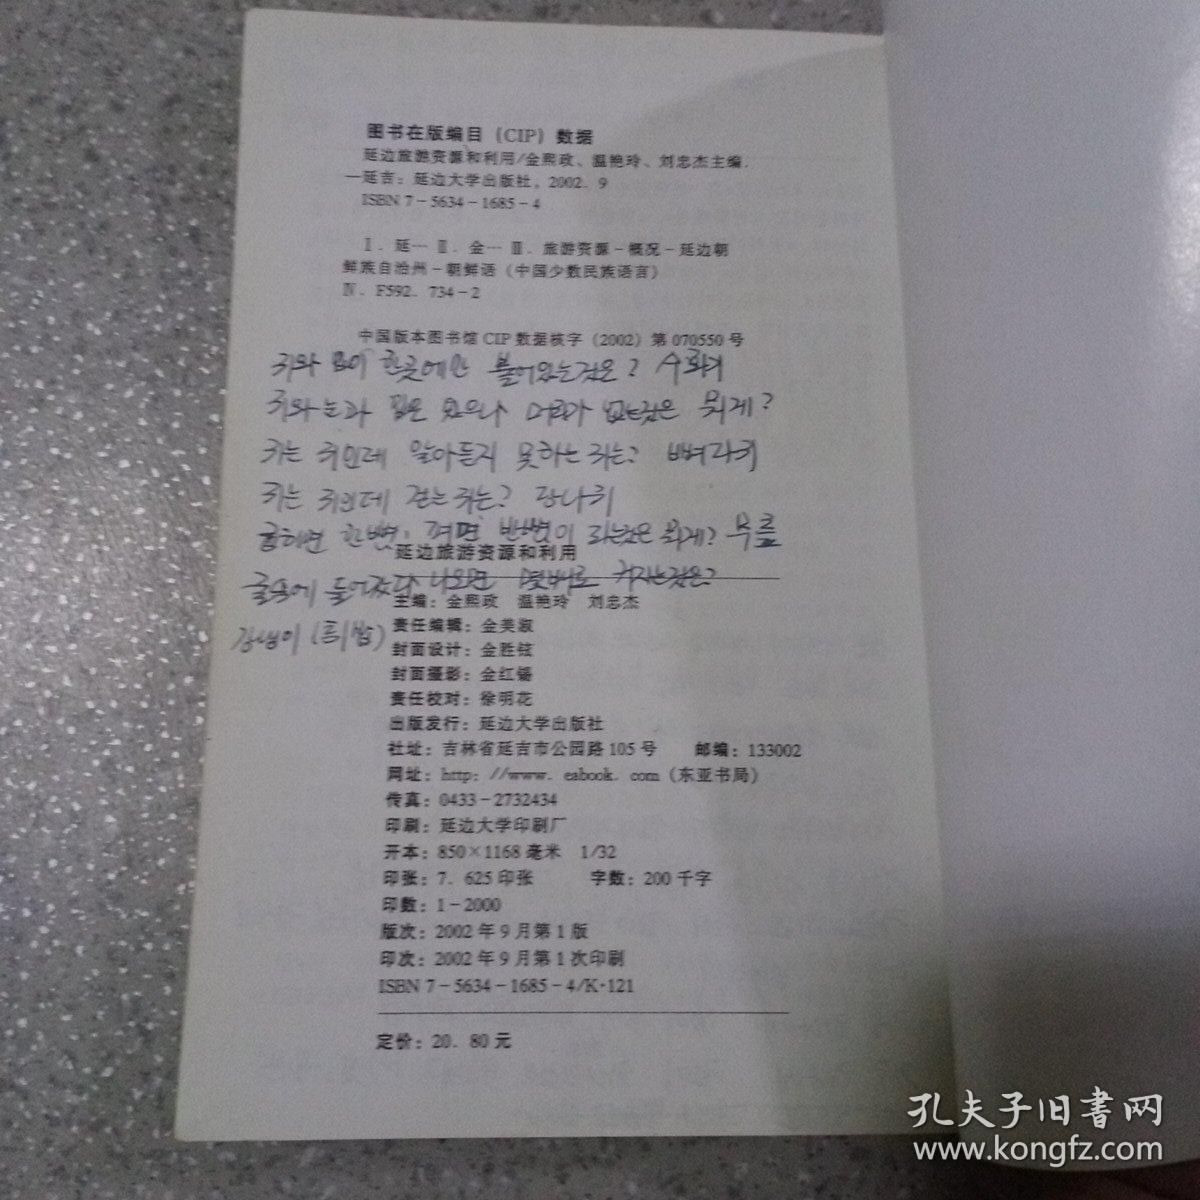 图书在版编目（CIP）数据
延边旅游资源和利用/金熙政、温艳玲、刘忠杰主编.
—延吉：延边大学出版社，2002．9
ISBN 7－5634－1685－4
Ⅰ．延… Ⅱ．金… Ⅲ．旅游资源－概况－延边朝
鲜族自治州－朝鲜语（中国少数民族语言）
Ⅳ．F592．734－2
中国版本图书馆 CIP 数据核字（2002）第 070550 号
귀와 입이 한곳에만 붙어있는것은? 수화기
귀와 눈과 입은 있으나 머리가 없는것은 뭐게?
귀는 귀인데 알아듣지 못하는 귀는? 뼈다귀
귀는 귀인데 걷는 귀는? 당나귀
굽히면 한뼘, 펴면 반뼘이 되는것은 뭐게? 무릎
延边旅游资源和利用
굴속에 들어갔다 나오면 몇배로 커지는것은?
主编：金熙政 温艳玲 刘忠杰
강냉이 (튀밥)
责任编辑：金美淑
封面设计：金胜铉
封面摄影：金红锡
责任校对：徐明花
出版发行：延边大学出版社
社址：吉林省延吉市公园路 105 号 邮编：133002
网址：http：//www．eabook．com（东亚书局）
传真：0433－2732434
印刷：延边大学印刷厂
开本：850×1168 毫米 1/32
印张：7．625 印张 字数：200 千字
印数：1－2000
版次：2002 年 9 月第 1 版
印次：2002 年 9 月第 1 次印刷
ISBN 7－5634－1685－4/K·121
定价：20．80 元
孔夫子旧書网
www.kongfz.com